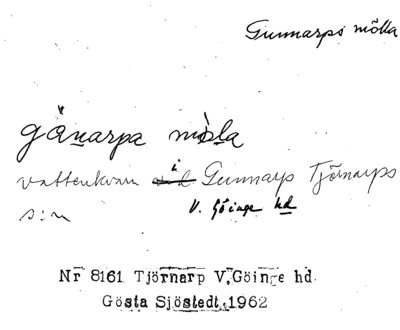 Gunnarps mölla
gånarpa mò̈la
vattenkvarn i Gunnarps Tjörnarps
s:n V. Göinge hd
Nr 8161 Tjörnarp V. Göinge hd.
Gösta Sjöstedt, 1962